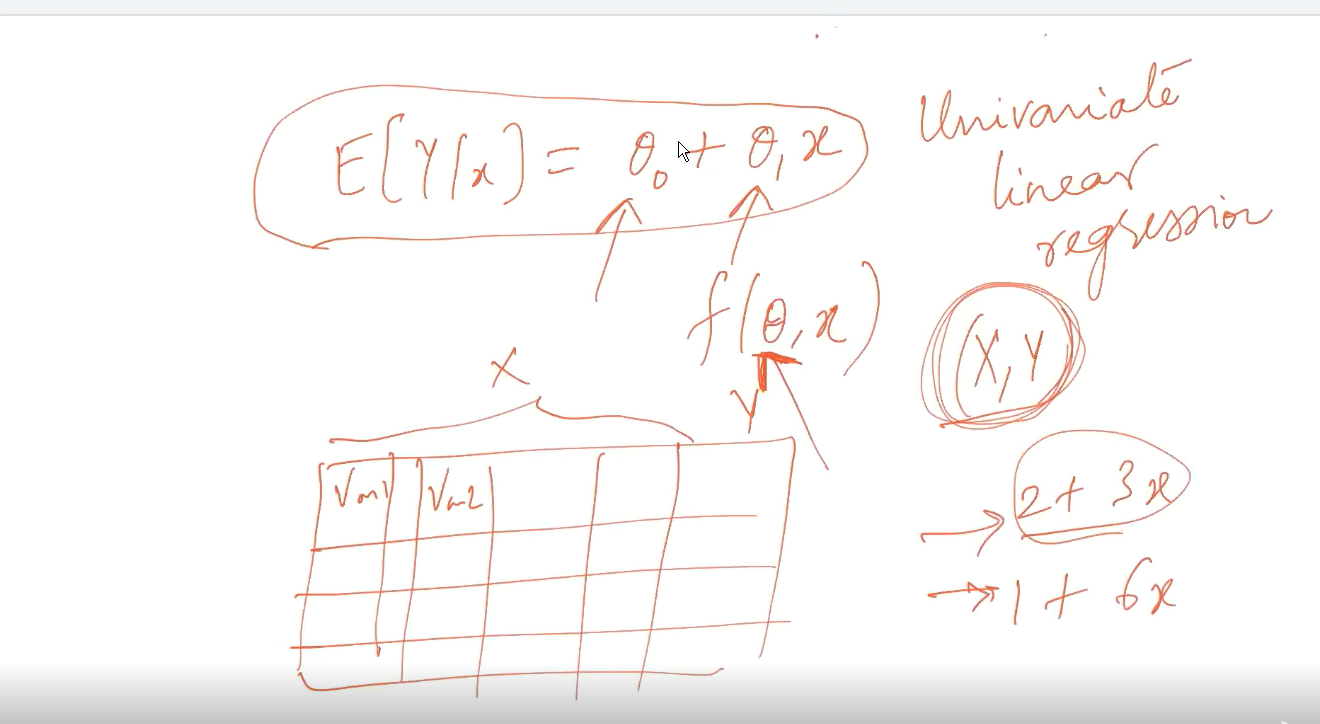 E[Y/x] = θ₀ + θ₁x
Univariate
linear
regression
f(θ, x)
(X, Y
X
Y
Var1 Var2
2 + 3x
1 + 6x